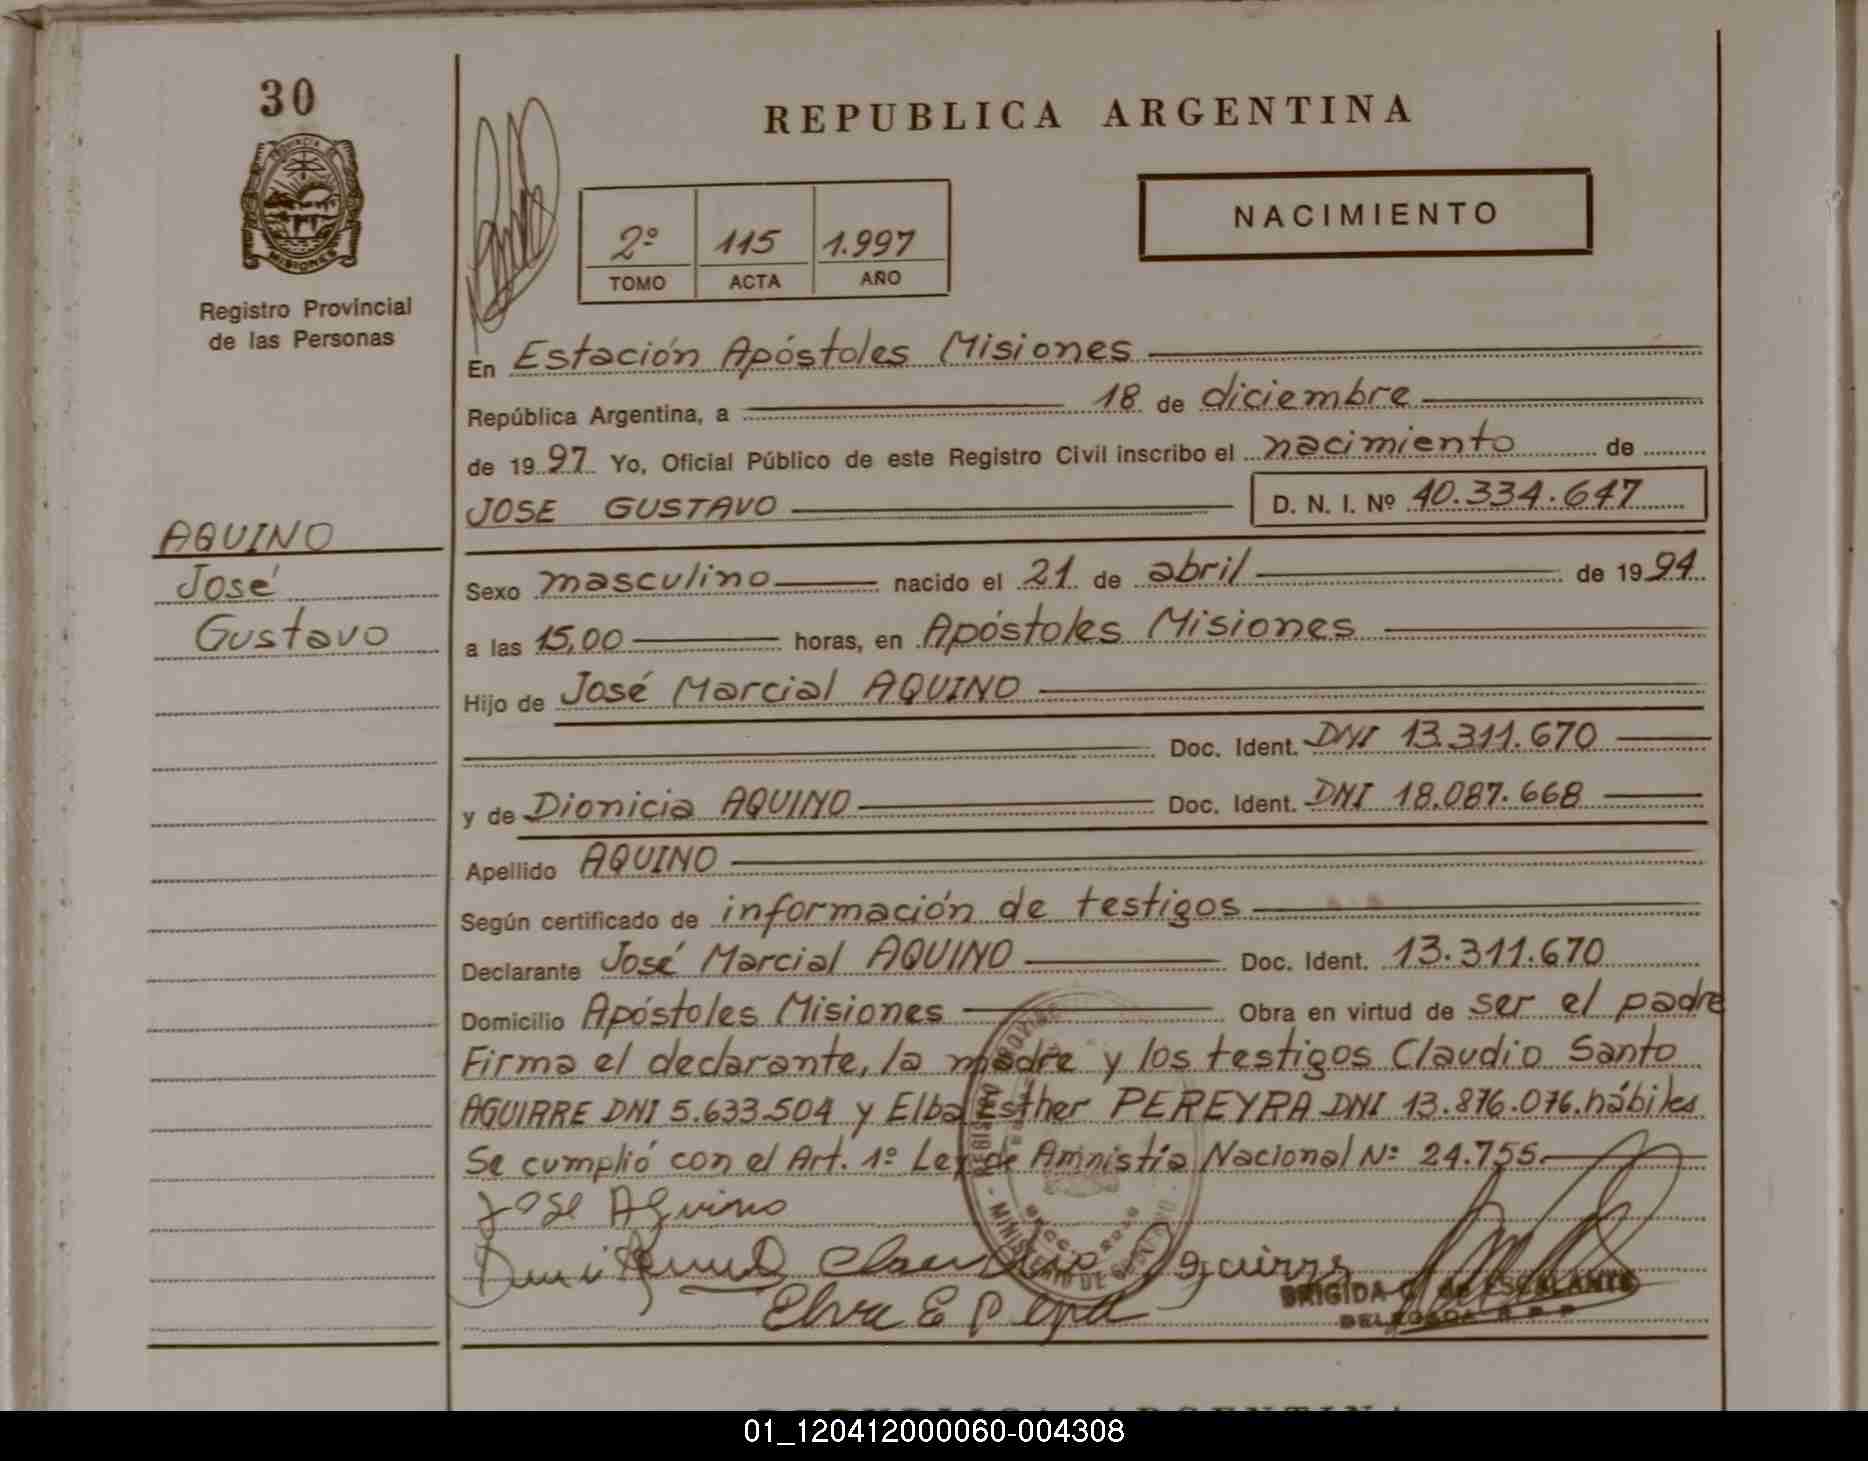 30
PROVINCIA DE
MISIONES
Registro Provincial
de las Personas
REPUBLICA ARGENTINA
2º 115 1.997
TOMO ACTA AÑO
NACIMIENTO
En Estación Apóstoles Misiones
República Argentina, a 18 de diciembre
de 1997 Yo, Oficial Público de este Registro Civil inscribo el nacimiento de
JOSE GUSTAVO D. N. I. Nº 40.334.647
AQUINO
José
Gustavo
Sexo masculino nacido el 21 de abril de 1994
a las 15,00 horas, en Apóstoles Misiones
Hijo de José Marcial AQUINO
Doc. Ident. DNI 13.311.670
y de Dionicia AQUINO Doc. Ident. DNI 18.087.668
Apellido AQUINO
Según certificado de información de testigos
Declarante José Marcial AQUINO Doc. Ident. 13.311.670
Domicilio Apóstoles Misiones Obra en virtud de ser el padre
Firma el declarante, la madre y los testigos Claudio Santo
AGUIRRE DNI 5.633.504 y Elba Esther PEREYRA DNI 13.876.076.hábiles
Se cumplió con el Art. 1º Ley de Amnistía Nacional Nº 24.755.
José Aquino
BRIGIDA G. de ESCALANTE
DELEGADA R.P.P.
REPUBLICA ARGENTINA
01_120412000060-004308